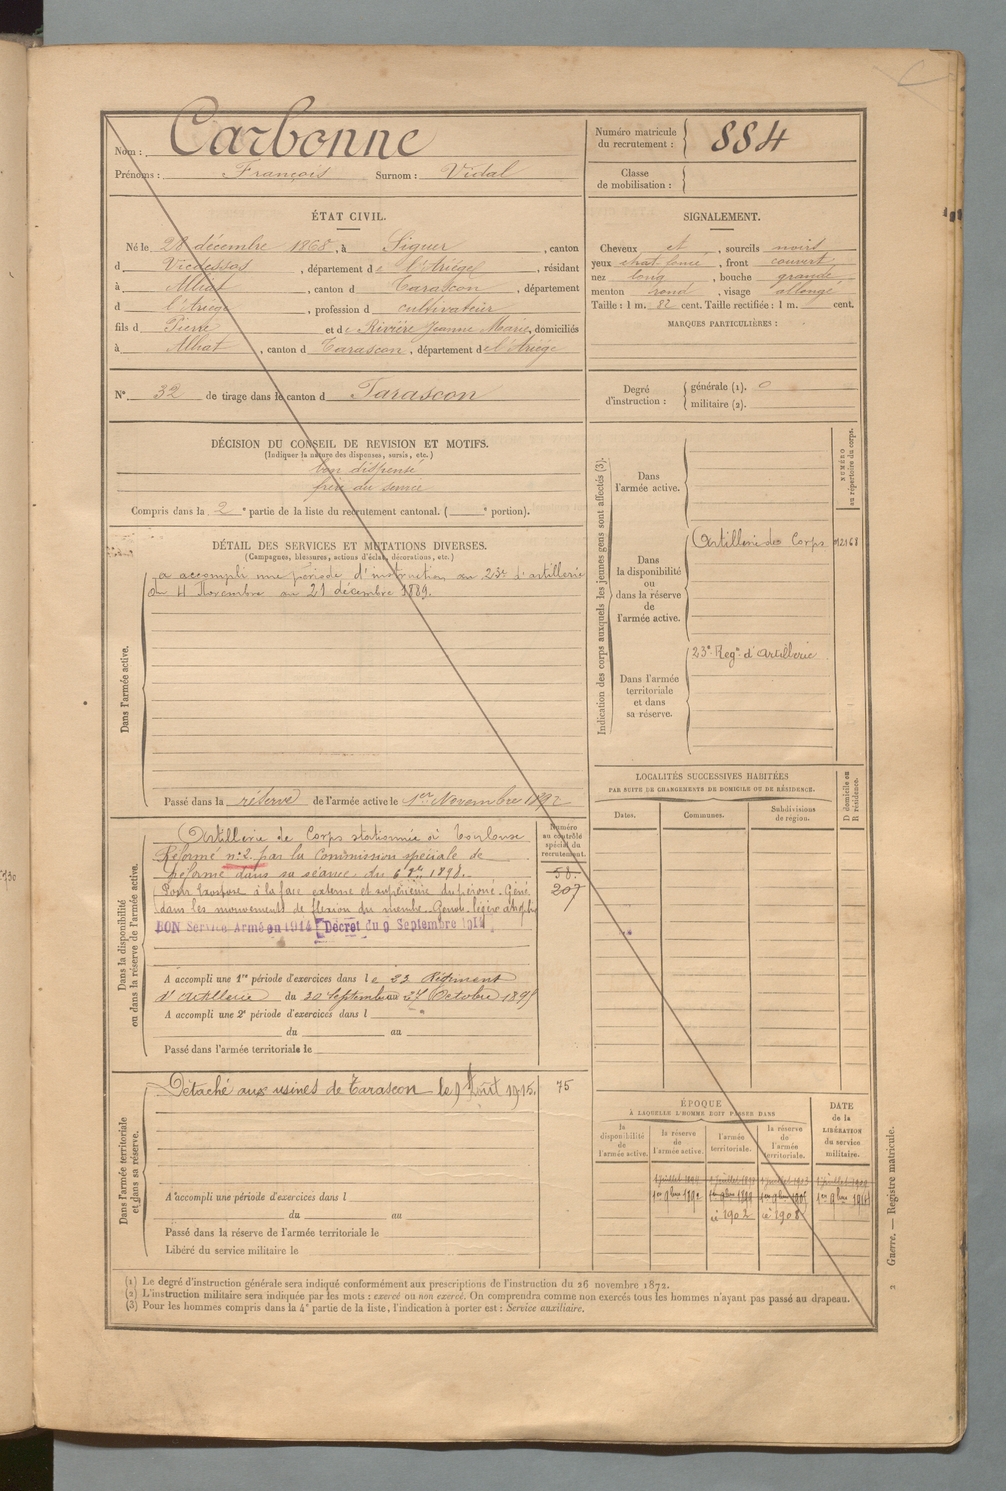 Nom : Carbonne
Prénoms : François Surnom : Vidal
Numéro matricule du recrutement : 884
Classe de mobilisation :
ÉTAT CIVIL.
Né le 28 décembre 1868, à Siguer, canton
d Vicdessos, département de l'Ariège, résidant
à Alliat, canton d Tarascon, département
d l'Ariège, profession d cultivateur
fils d Pierre et de Rivière Jeanne Marie, domiciliés
à Alliat, canton d Tarascon, département de l'Ariège
N° 32 de tirage dans le canton d Tarascon
SIGNALEMENT.
Cheveux et, sourcils noirs
yeux chat. foncé, front couvert
nez long, bouche grande
menton rond, visage allongé
Taille : 1 m. 82 cent. Taille rectifiée : 1 m. cent.
MARQUES PARTICULIÈRES :
Degré d'instruction :
générale (1). 0
militaire (2).
DÉCISION DU CONSEIL DE REVISION ET MOTIFS.
(Indiquer la nature des dispenses, sursis, etc.)
bon dispensé
frère au service
Compris dans la 2e partie de la liste du recrutement cantonal. ( e portion).
DÉTAIL DES SERVICES ET MUTATIONS DIVERSES.
(Campagnes, blessures, actions d'éclat, décorations, etc.)
Dans l'armée active.
a accompli une période d'instruction au 23e d'artillerie
du 11 Novembre au 21 décembre 1889.
Passé dans la réserve de l'armée active le 1er Novembre 1892
Indication des corps auxquels les jeunes gens sont affectés (3).
NUMÉRO au répertoire du corps.
Dans l'armée active.
Dans la disponibilité ou dans la réserve de l'armée active.
Artillerie de Corps
Dans l'armée territoriale et dans sa réserve.
23e Regt d'Artillerie
LOCALITÉS SUCCESSIVES HABITÉES
PAR SUITE DE CHANGEMENTS DE DOMICILE OU DE RÉSIDENCE.
D domicile ou R résidence.
Dates. Communes. Subdivisions de région.
Dans la disponibilité ou dans la réserve de l'armée active.
Numéro au contrôle spécial du recrutement.
58.
207
Artillerie de Corps stationnée à Toulouse
Réformé n° 2 par la Commission spéciale de
réforme dans sa séance du 6 1898.
Pour Exostose à la face externe et supérieure du péroné. Gêné
dans les mouvements de flexion du membre. légère atrophie
BON Service Armé en 1914 Décret du 9 Septembre 1914
A accompli une 1re période d'exercices dans le 23 Régiment
d'Artillerie du 30 Septembre au 27 Octobre 1895
A accompli une 2e période d'exercices dans l
du au
Passé dans l'armée territoriale le
Dans l'armée territoriale et dans sa réserve.
Détaché aux usines de Tarascon le 9 Août 1915. 75
A accompli une période d'exercices dans l
du au
Passé dans la réserve de l'armée territoriale le
Libéré du service militaire le
ÉPOQUE
À LAQUELLE L'HOMME DOIT PASSER DANS
DATE de la LIBÉRATION du service militaire.
la disponibilité de l'armée active.
la réserve de l'armée active.
l'armée territoriale.
la réserve de l'armée territoriale.
1er 9bre 1892
ct 1902 ct 1908
(1) Le degré d'instruction générale sera indiqué conformément aux prescriptions de l'instruction du 26 novembre 1872.
(2) L'instruction militaire sera indiquée par les mots : exercé ou non exercé. On comprendra comme non exercés tous les hommes n'ayant pas passé au drapeau.
(3) Pour les hommes compris dans la 4e partie de la liste, l'indication à porter est : Service auxiliaire.
2 Guerre. — Registre matricule.